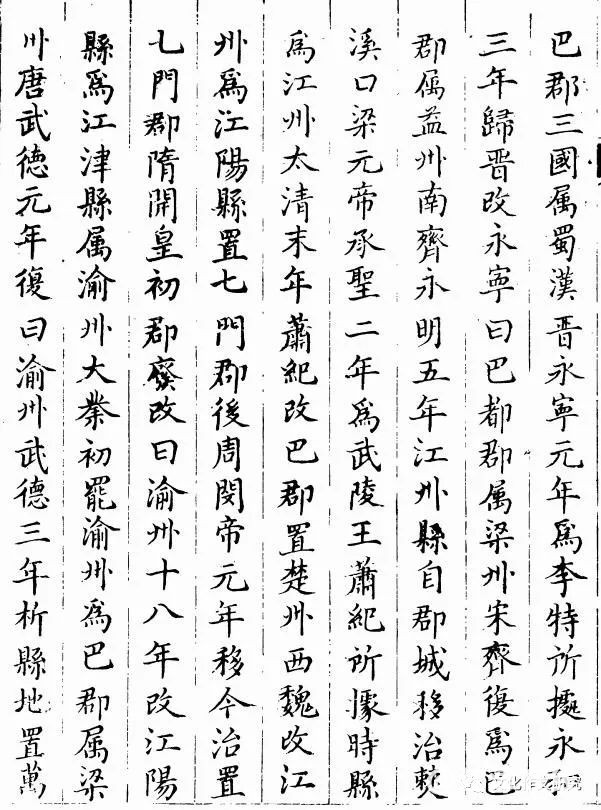 巴郡三國属蜀漢晋永寧元年爲李特所據永和
三年歸晋改永寧曰巴都郡属梁州宋齊復爲巴
郡属益州南齊永明五年江州縣自郡城移治僰
溪口梁元帝承聖二年爲武陵王蕭紀所據時縣
爲江州太清末年蕭紀改巴郡置楚州西魏改江
州爲江陽縣置七門郡後周閔帝元年移今治置
七門郡隋開皇初郡廢改曰渝州十八年改江陽
縣爲江津縣属渝州大業初罷渝州爲巴郡属梁
州唐武德元年復曰渝州武德三年析縣地置萬